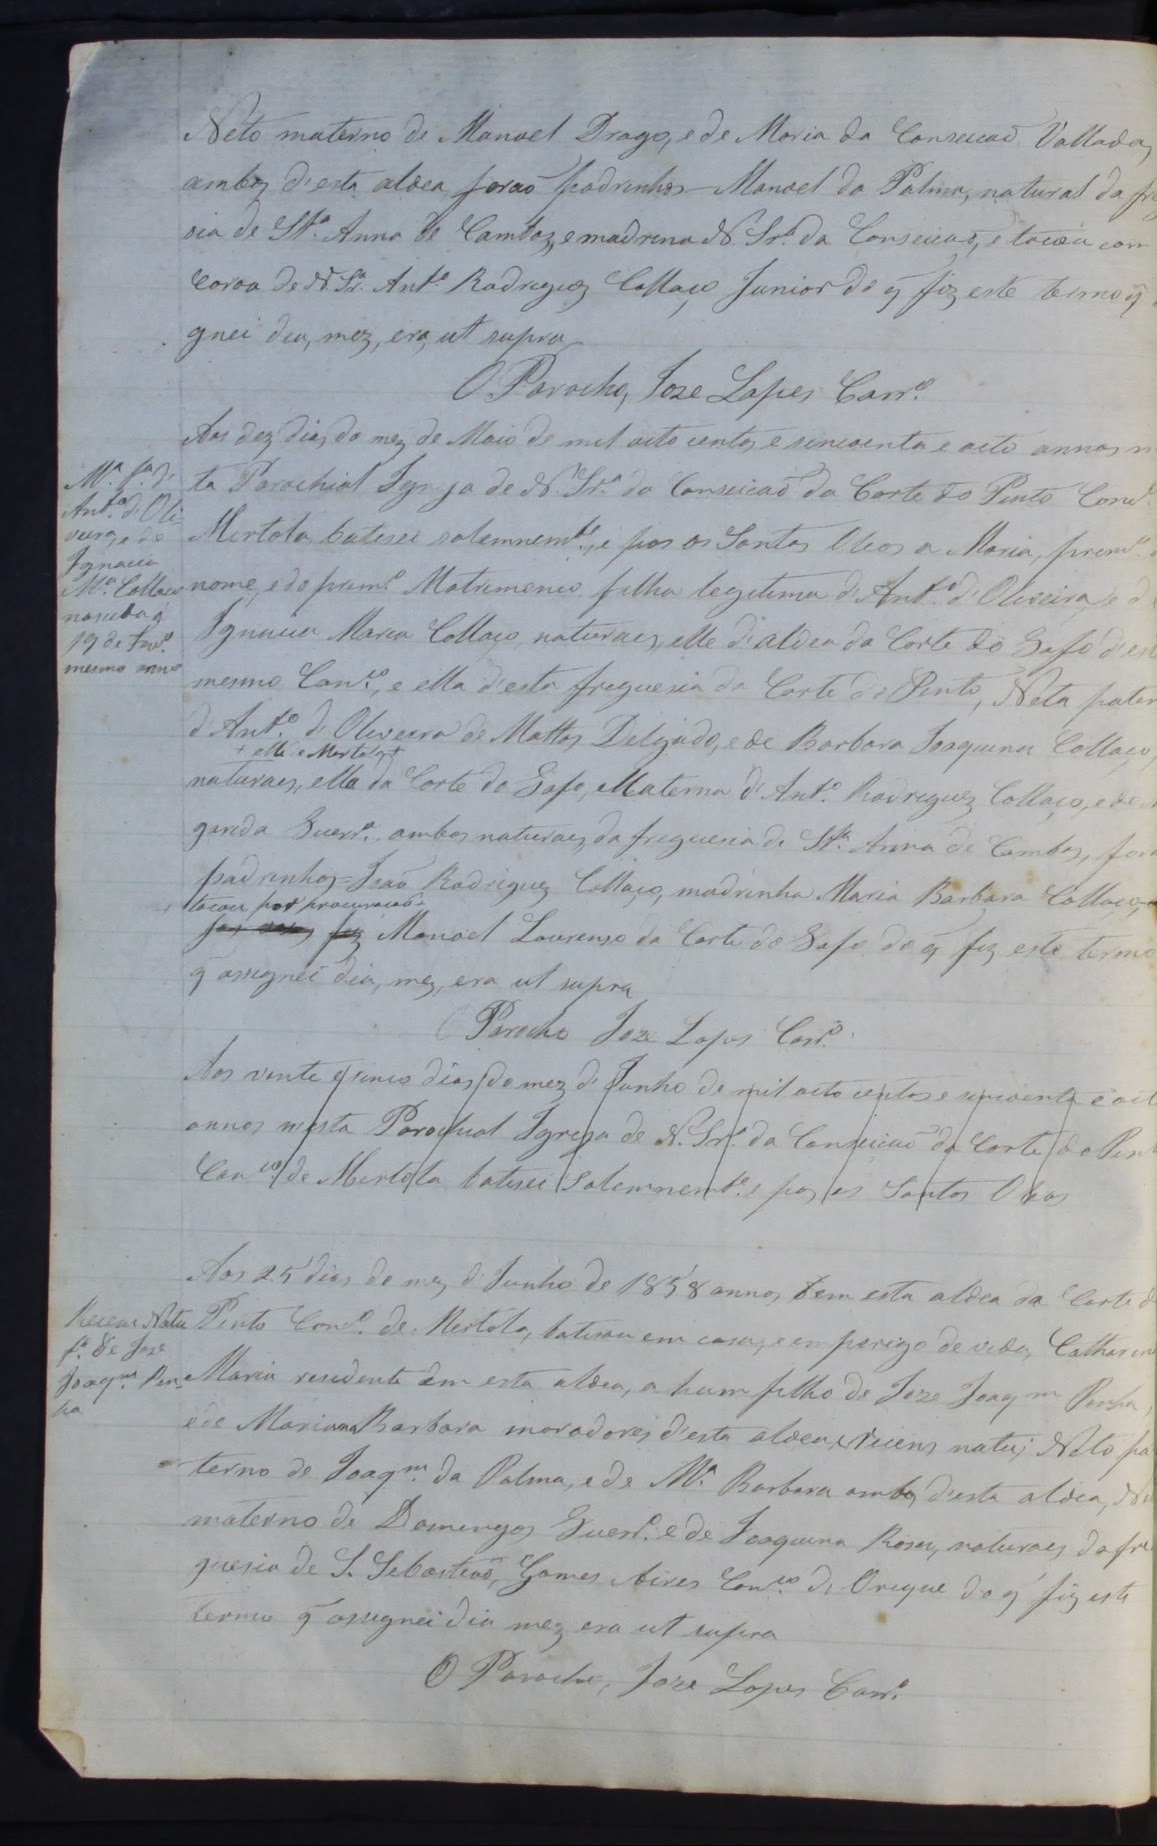 Neto materno de Manoel Drago, e de Maria da Conseicaõ Vallada,
ambos d'esta aldea foraõ padrinhos Manoel da Palma, natural da fre
sia de Stª. Anna de Cambas, e madrena N. Srª. da Conseicaõ, e tocou com
coroa de N. Sr. Antº. Rodriguez Collaço Junior do q̃ fiz este termo q̃
gnei dia, mez, era, ut supra
O Parocho, Joze Lopes Carrº.
Aos dez dias do mez de Maio de mil oito centos e sincoenta e oito annos n
ta Parochial Igreja de N. Srª. da Conseicaõ da Corte do Pinto Concº.
Mertola batisei solemnemte., e pos os Santos Oleos a Maria, primrª.
nome, e do primrº. Matrimonio filha legitima d'Antº. d'Oliveira, e d
Ignacia Maria Collaço, naturaes, elle d'aldea da Corte do Gafo d'es
mesmo Conco., e ella d'esta freguesia da Corte do Pinto, Neta pater
d'Antº. d'Oliveira de Mattos Delgado, e de Barbara Joaquina Collaço,
+ elle Mertola +
naturaes, ella da Corte do Gafo, Materna d'Antº. Rodriguez Collaço, e de M
garida Guerrª. ambos naturaes da freguesia de Stª. Anna de Cambas, fora
padrinhos = Joaõ Rodriguez Collaço, madrinha Maria Barbara Collaço,
+ tocou por procuracaõ
Manoel Lourenso da Corte do Gafo do q̃ fiz este termo
q̃ assignei dia, mez, era ut supra
O Parocho Joze Lopes Carrº.
Aos vinte e sinco dias do mez d'Junho de mil oito centos e sincoenta e oit
annos nesta Parochial Igreja de N. Srª. da Conseicaõ da Corte do Pin
Conco. de Mertola batisei solemnemte. e pos os Santos Oleos
Aos 25 dias do mez d'Junho de 1858 annos em esta aldea da Corte d
Pinto Conco. de Mertola, batisou em casa, e em perigo de vida, Catharin
Maria residente em esta aldea, a hum filho de Joze Joaqm. Penha,
e de Marianna Barbara moradores d'esta aldea, Recens natu; Neto pa
terno de Joaqm. da Palma, e de Mª. Barbara ambos d'esta aldea, Ne
materno de Domingos Guerrº. e de Joaquina Rosa, naturaes da fre
guesia de S. Sebastiaõ, Gomes Aires Conco. d'Orique do q̃ fiz este
termo q̃ assignei dia mez era ut supra
O Parocho, Joze Lopes Carrº.
Mª. fª. d'
Antº. d'Oli
veira, e de
Ignacia
Mª. Collaço
nascida a
19 de
mesmo anno
Recens Natu
fº. de Joze
Joaqm. Pen
ha